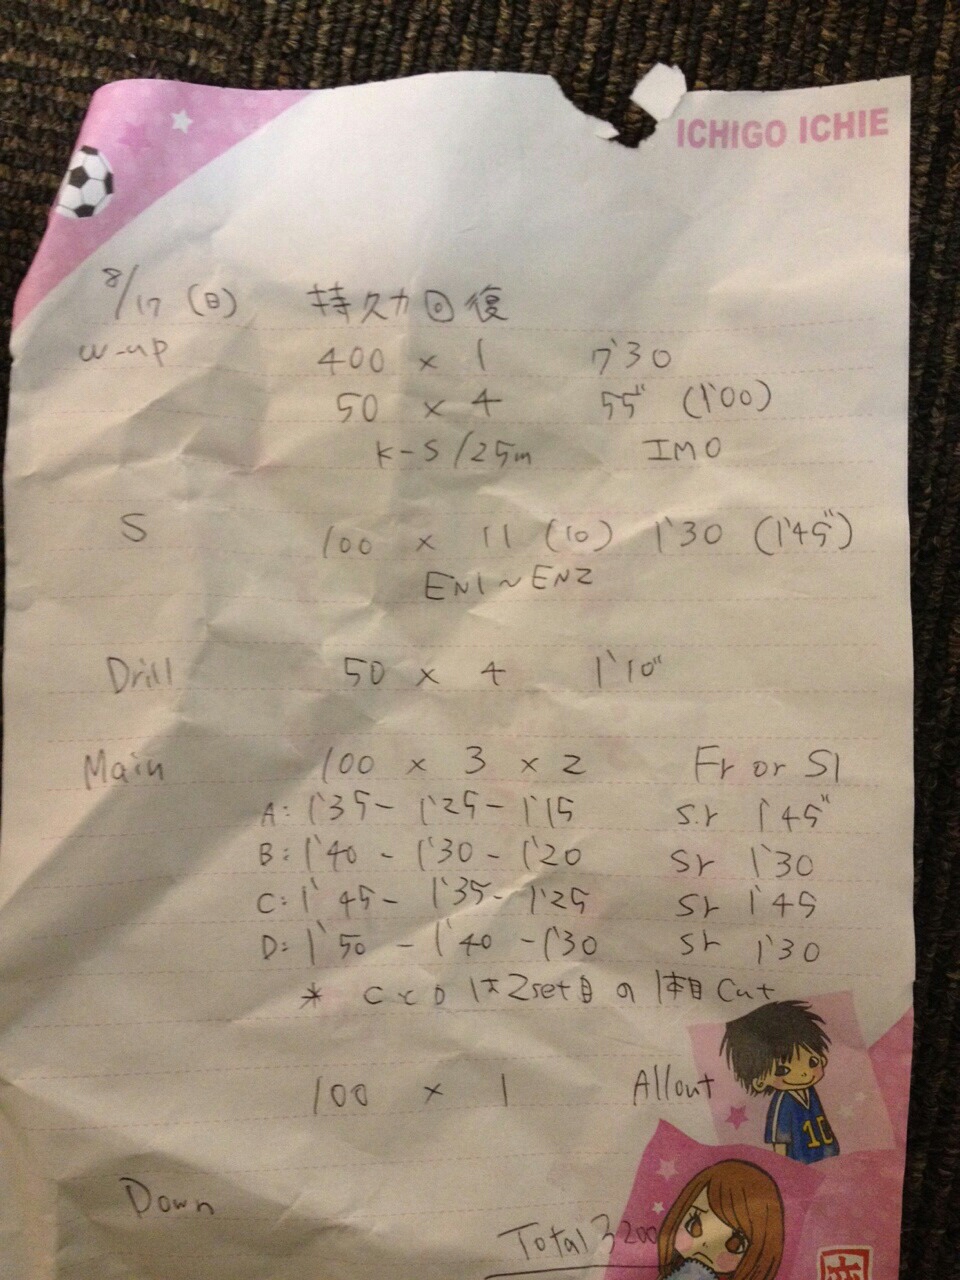 ICHIGO ICHIE
8/17 (日) 持久力回復
W-up 400 × 1 7'30
50 × 4 55" (1'00)
K-S/25m IMO
S 100 × 11 (10) 1'30 (1'45")
EN1~EN2
Drill 50 × 4 1'10"
Main 100 × 3 × 2 Fr or S1
A: 1'35 - 1'25 - 1'15 S.r 1'45"
B: 1'40 - 1'30 - 1'20 Sr 1'30
C: 1'45 - 1'35 - 1'25 Sr 1'45
D: 1'50 - 1'40 - 1'30 Sr 1'30
* CとDは2set目の1本目Cut
100 × 1 Allout
10
Down
Total 3200